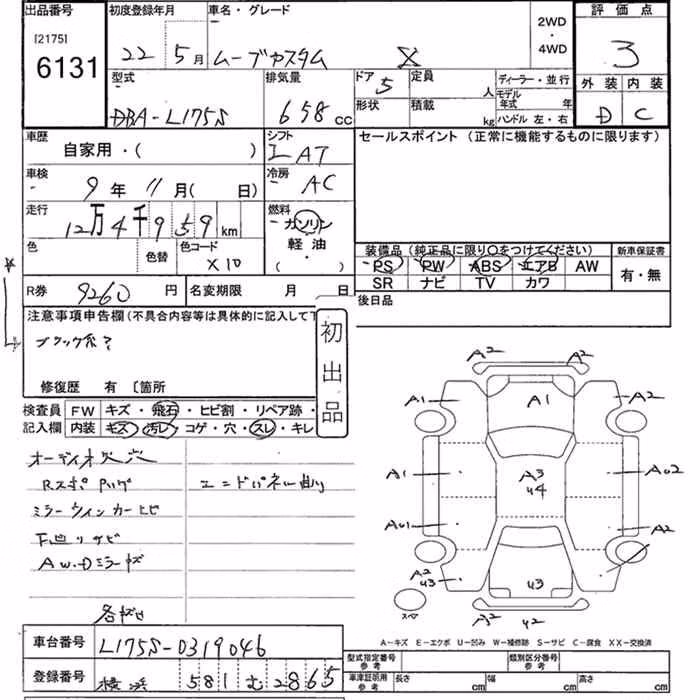 出品番号 初度登録年月 車名・グレード 2WD・4WD 評価点
[2175] 6131 22 5月 ムーブカスタム X 3
型式 排気量 ドア 5 定員 人 ディーラー・並行 外装 内装
DBA-L175S 658cc 形状 積載 kg モデル年式 年 ハンドル 左・右 D C
車歴 自家用・( ) シフト IAT セールスポイント (正常に機能するものに限ります)
車検 9年 11月( 日) 冷房 AC
走行 12万4千959km 燃料 ガソリン 軽油 ( )
色 色替 色コード X10
装備品 (純正品に限り○をつけてください) 新車保証書
PS PW ABS エアB AW 有・無
SR ナビ TV カワ
R券 9260円 名変期限 月 日 後日品
注意事項申告欄(不具合内容等は具体的に記入して下
初出品
修復歴 有 〔箇所
検査員記入欄 FW キズ・飛石・ヒビ割・リペア跡・
内装 キズ・汚レ・コゲ・穴・スレ・キレ
オーディオ欠 穴
ミラーウィンカーヒビ
下廻りサビ
A2 A2
A1 A1 A2
A1 A3 44 A02
A01 A2
A2 43 43
スペア A2 42
A-キズ E-エクボ U-凹み W-補修跡 S-サビ C-腐食 XX-交換済
車台番号 L175S-0319046
登録番号 横浜 581 む 2865
型式指定番号 参考 類別区分番号 参考
車庫証明用 参考 長さ cm 幅 cm 高さ cm